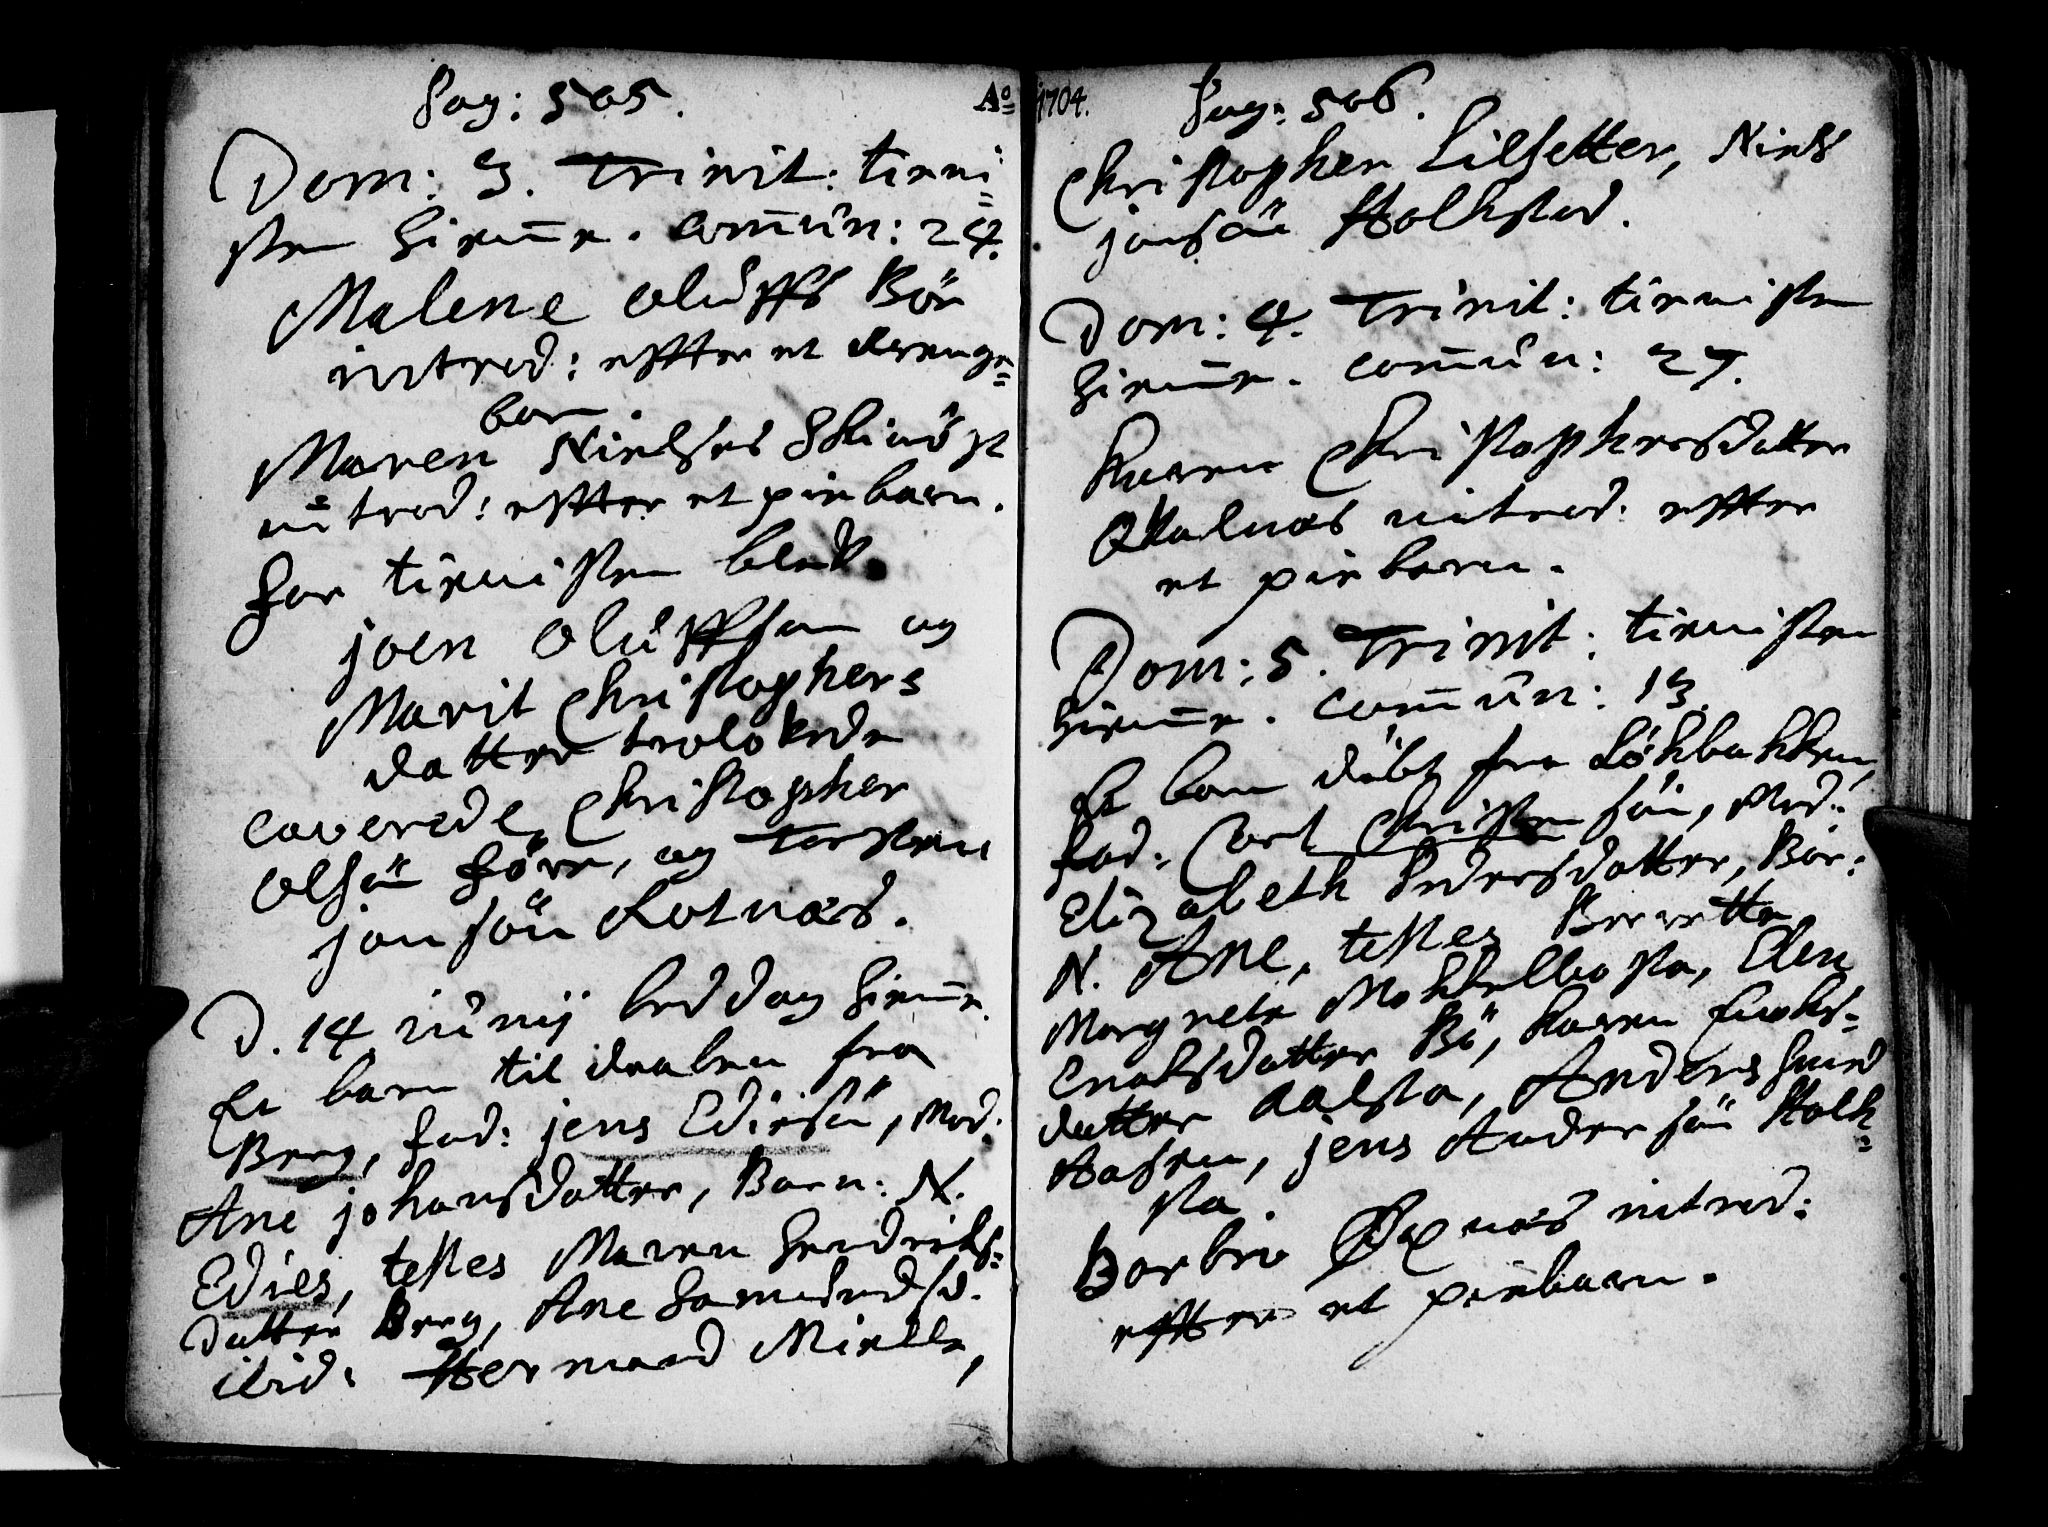 Pag: 505.
Dom: 3. Trinit: tieni=
sten hieme. com̄un: 24.
Malene Oluffs Böe
introd: effter et drenge=
barn.
Maren Nielses Skinös
introd: effter et piebarn.
for tienisten blef
joen Oluffsøn og
Marit Christophers
datter trolofvede
caverede, Christopher
Olsön höve, og Torsten
jonsön Rotnæs.
D. 14 junij beddag hieme.
Et barn til daaben fra
Berg, fad: jens Ediesön, Mod:
Ane johansdatter, Barn: N.
Edies, testes Maren Hendrichs=
datter Berg, Ane Samuelsd.
ibid: Hermand Mielle,
Aº 1704.
Pag: 506.
Christopher Lilsetter, Niels
jonsön Holkstad.
Dom: 4. Trinit: tienisten
hieme. com̄un: 27.
Karen Christophersdatter
Skalnæs introd: effter
et piebarn.
Dom: 5. Trinit: tienisten
hieme. com̄un: 13.
Et barn döbt fra Löchbakken,
fad: Cort Christensön, Mod:
Elizabeth Pedersdatter, Bar:
N. Ane, testes Berette
Margrete Mokkelbosta, Elen
Enoksdatter Bö, Karen Enoks=
datter Aalsta, Anders Svend
Aasen, jens Andersön Holk=
sta.
Barbro Öxnæs introd:
effter et piebarn.